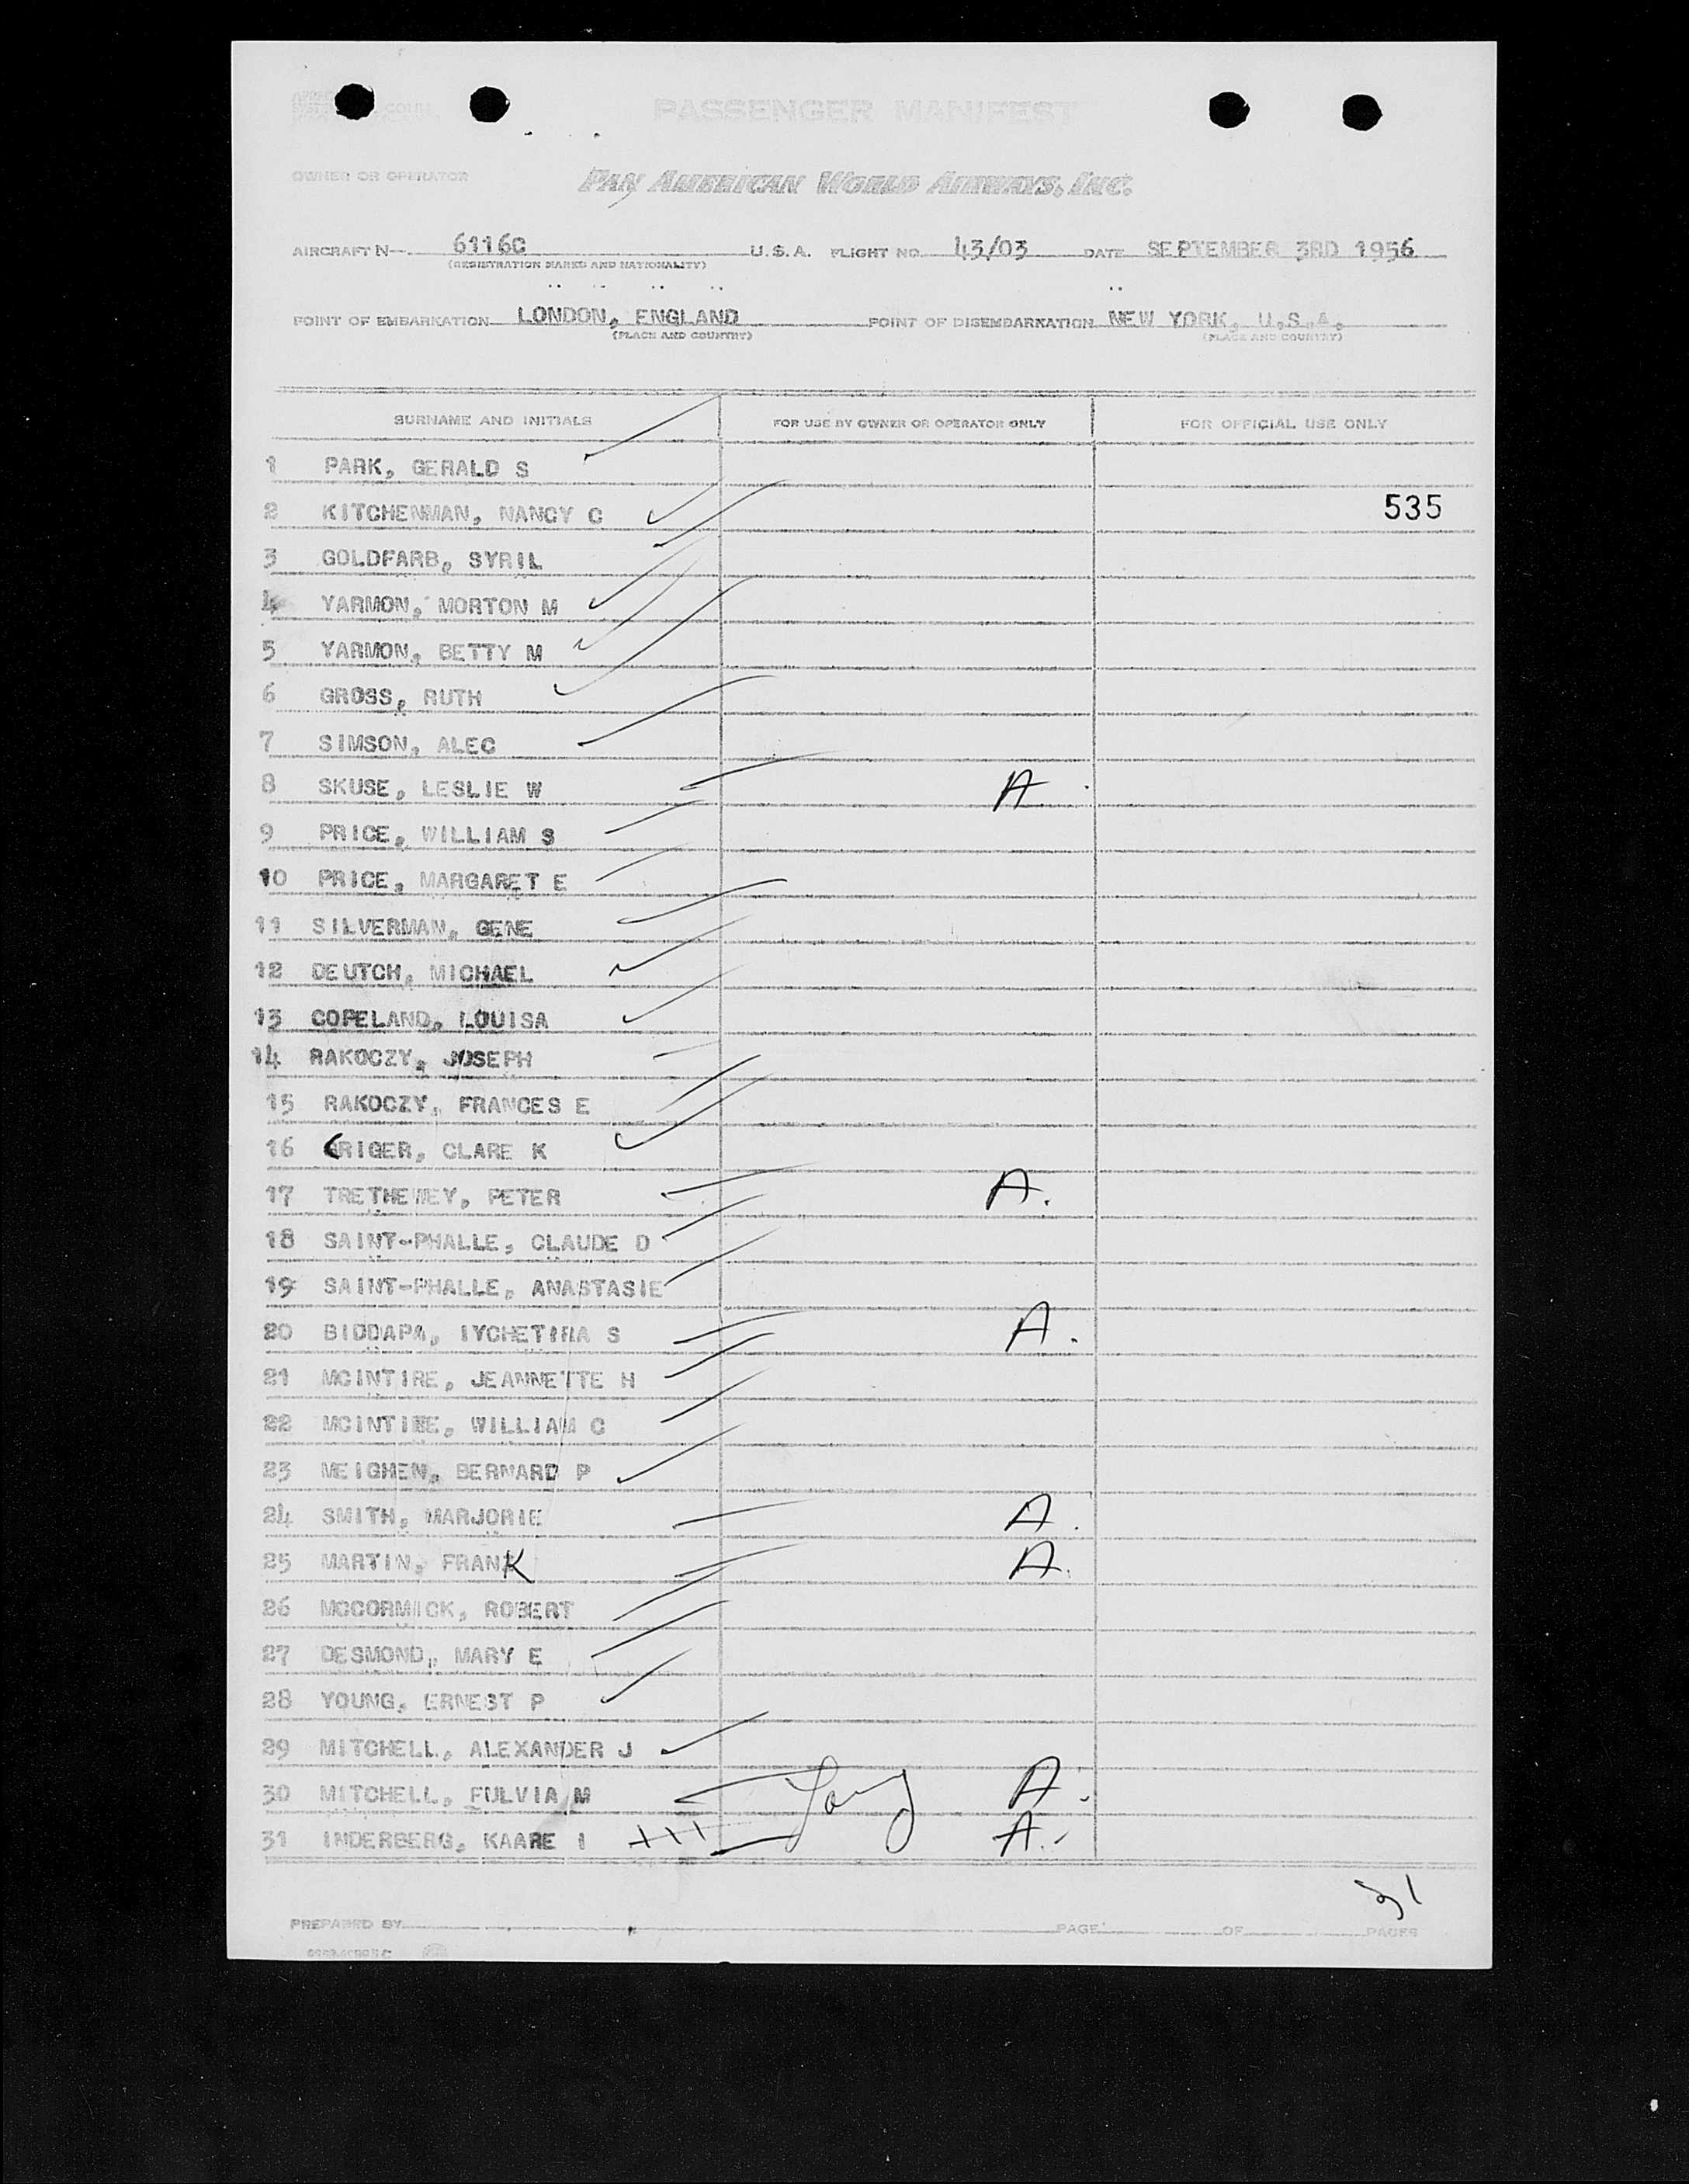 PASSENGER MANIFEST
OWNER OR OPERATOR PAN AMERICAN WORLD AIRWAYS, INC.
AIRCRAFT N 6116C U.S.A. FLIGHT NO. 43/03 DATE SEPTEMBER 3RD 1956
(REGISTRATION MARKS AND NATIONALITY)
POINT OF EMBARKATION LONDON, ENGLAND POINT OF DISEMBARKATION NEW YORK, U.S.A.
(PLACE AND COUNTRY) (PLACE AND COUNTRY)
SURNAME AND INITIALS FOR USE BY OWNER OR OPERATOR ONLY FOR OFFICIAL USE ONLY
1 PARK, GERALD S
2 KITCHENMAN, NANCY C 535
3 GOLDFARB, SYRIL
4 YARMON, MORTON M
5 YARMON, BETTY M
6 GROSS, RUTH
7 SIMSON, ALEC
8 SKUSE, LESLIE W A
9 PRICE, WILLIAM S
10 PRICE, MARGARET E
11 SILVERMAN, GENE
12 DEUTCH, MICHAEL
13 COPELAND, LOUISA
14 RAKOCZY, JOSEPH
15 RAKOCZY, FRANCES E
16 CRIGER, CLARE K
17 TRETHEWEY, PETER A.
18 SAINT-PHALLE, CLAUDE D
19 SAINT-PHALLE, ANASTASIE
20 BIDDAPA, S A.
21 MCINTIRE, JEANNETTE H
22 MCINTIRE, WILLIAM C
23 MEIGHEN, BERNARD P
24 SMITH, MARJORIE A.
25 MARTIN, FRANK A.
26 MCCORMICK, ROBERT
27 DESMOND, MARY E
28 YOUNG, ERNEST P
29 MITCHELL, ALEXANDER J
30 MITCHELL, FULVIA M A.
31 INDERBERG, KAARE I A.
31
PREPARED BY PAGE OF PAGES